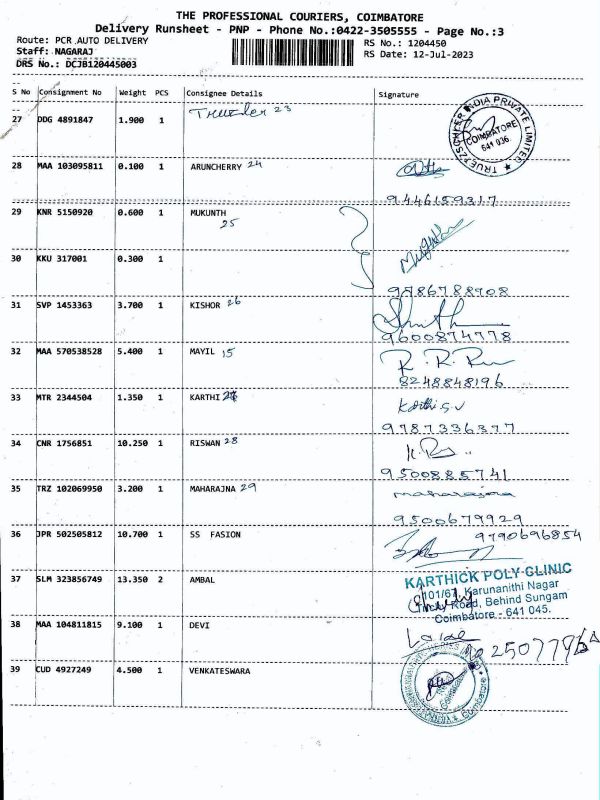 THE PROFESSIONAL COURIERS, COIMBATORE
Delivery Runsheet - PNP - Phone No.:0422-3505555 - Page No.:3
Route: PCR AUTO DELIVERY
RS No.: 1204450
Staff: NAGARAJ
RS Date: 12-Jul-2023
DRS No.: DCJB120445003
S No Consignment No Weight PCS Consignee Details Signature
27 DDG 4891847 1.900 1 23
COIMBATORE
641 036
28 MAA 103095811 0.100 1 ARUNCHERRY 24
9446159317
29 KNR 5150920 0.600 1 MUKUNTH
25
30 KKU 317001 0.300 1
9786788908
31 SVP 1453363 3.700 1 KISHOR 26
9600874778
32 MAA 570538528 5.400 1 MAYIL 15
8248848196
33 MTR 2344504 1.350 1 KARTHI
9787336377
34 CNR 1756851 10.250 1 RISWAN 28
9500885741
35 TRZ 102069950 3.200 1 MAHARAJNA 29
maharajna
9500679929
36 JPR 502505812 10.700 1 SS FASION
9790696854
37 SLM 323856749 13.350 2 AMBAL
KARTHICK POLY CLINIC
Karunanithi Nagar
Road, Behind Sungam
Coimbatore - 641 045.
38 MAA 104811815 9.100 1 DEVI
39 CUD 4927249 4.500 1 VENKATESWARA
Coimbatore